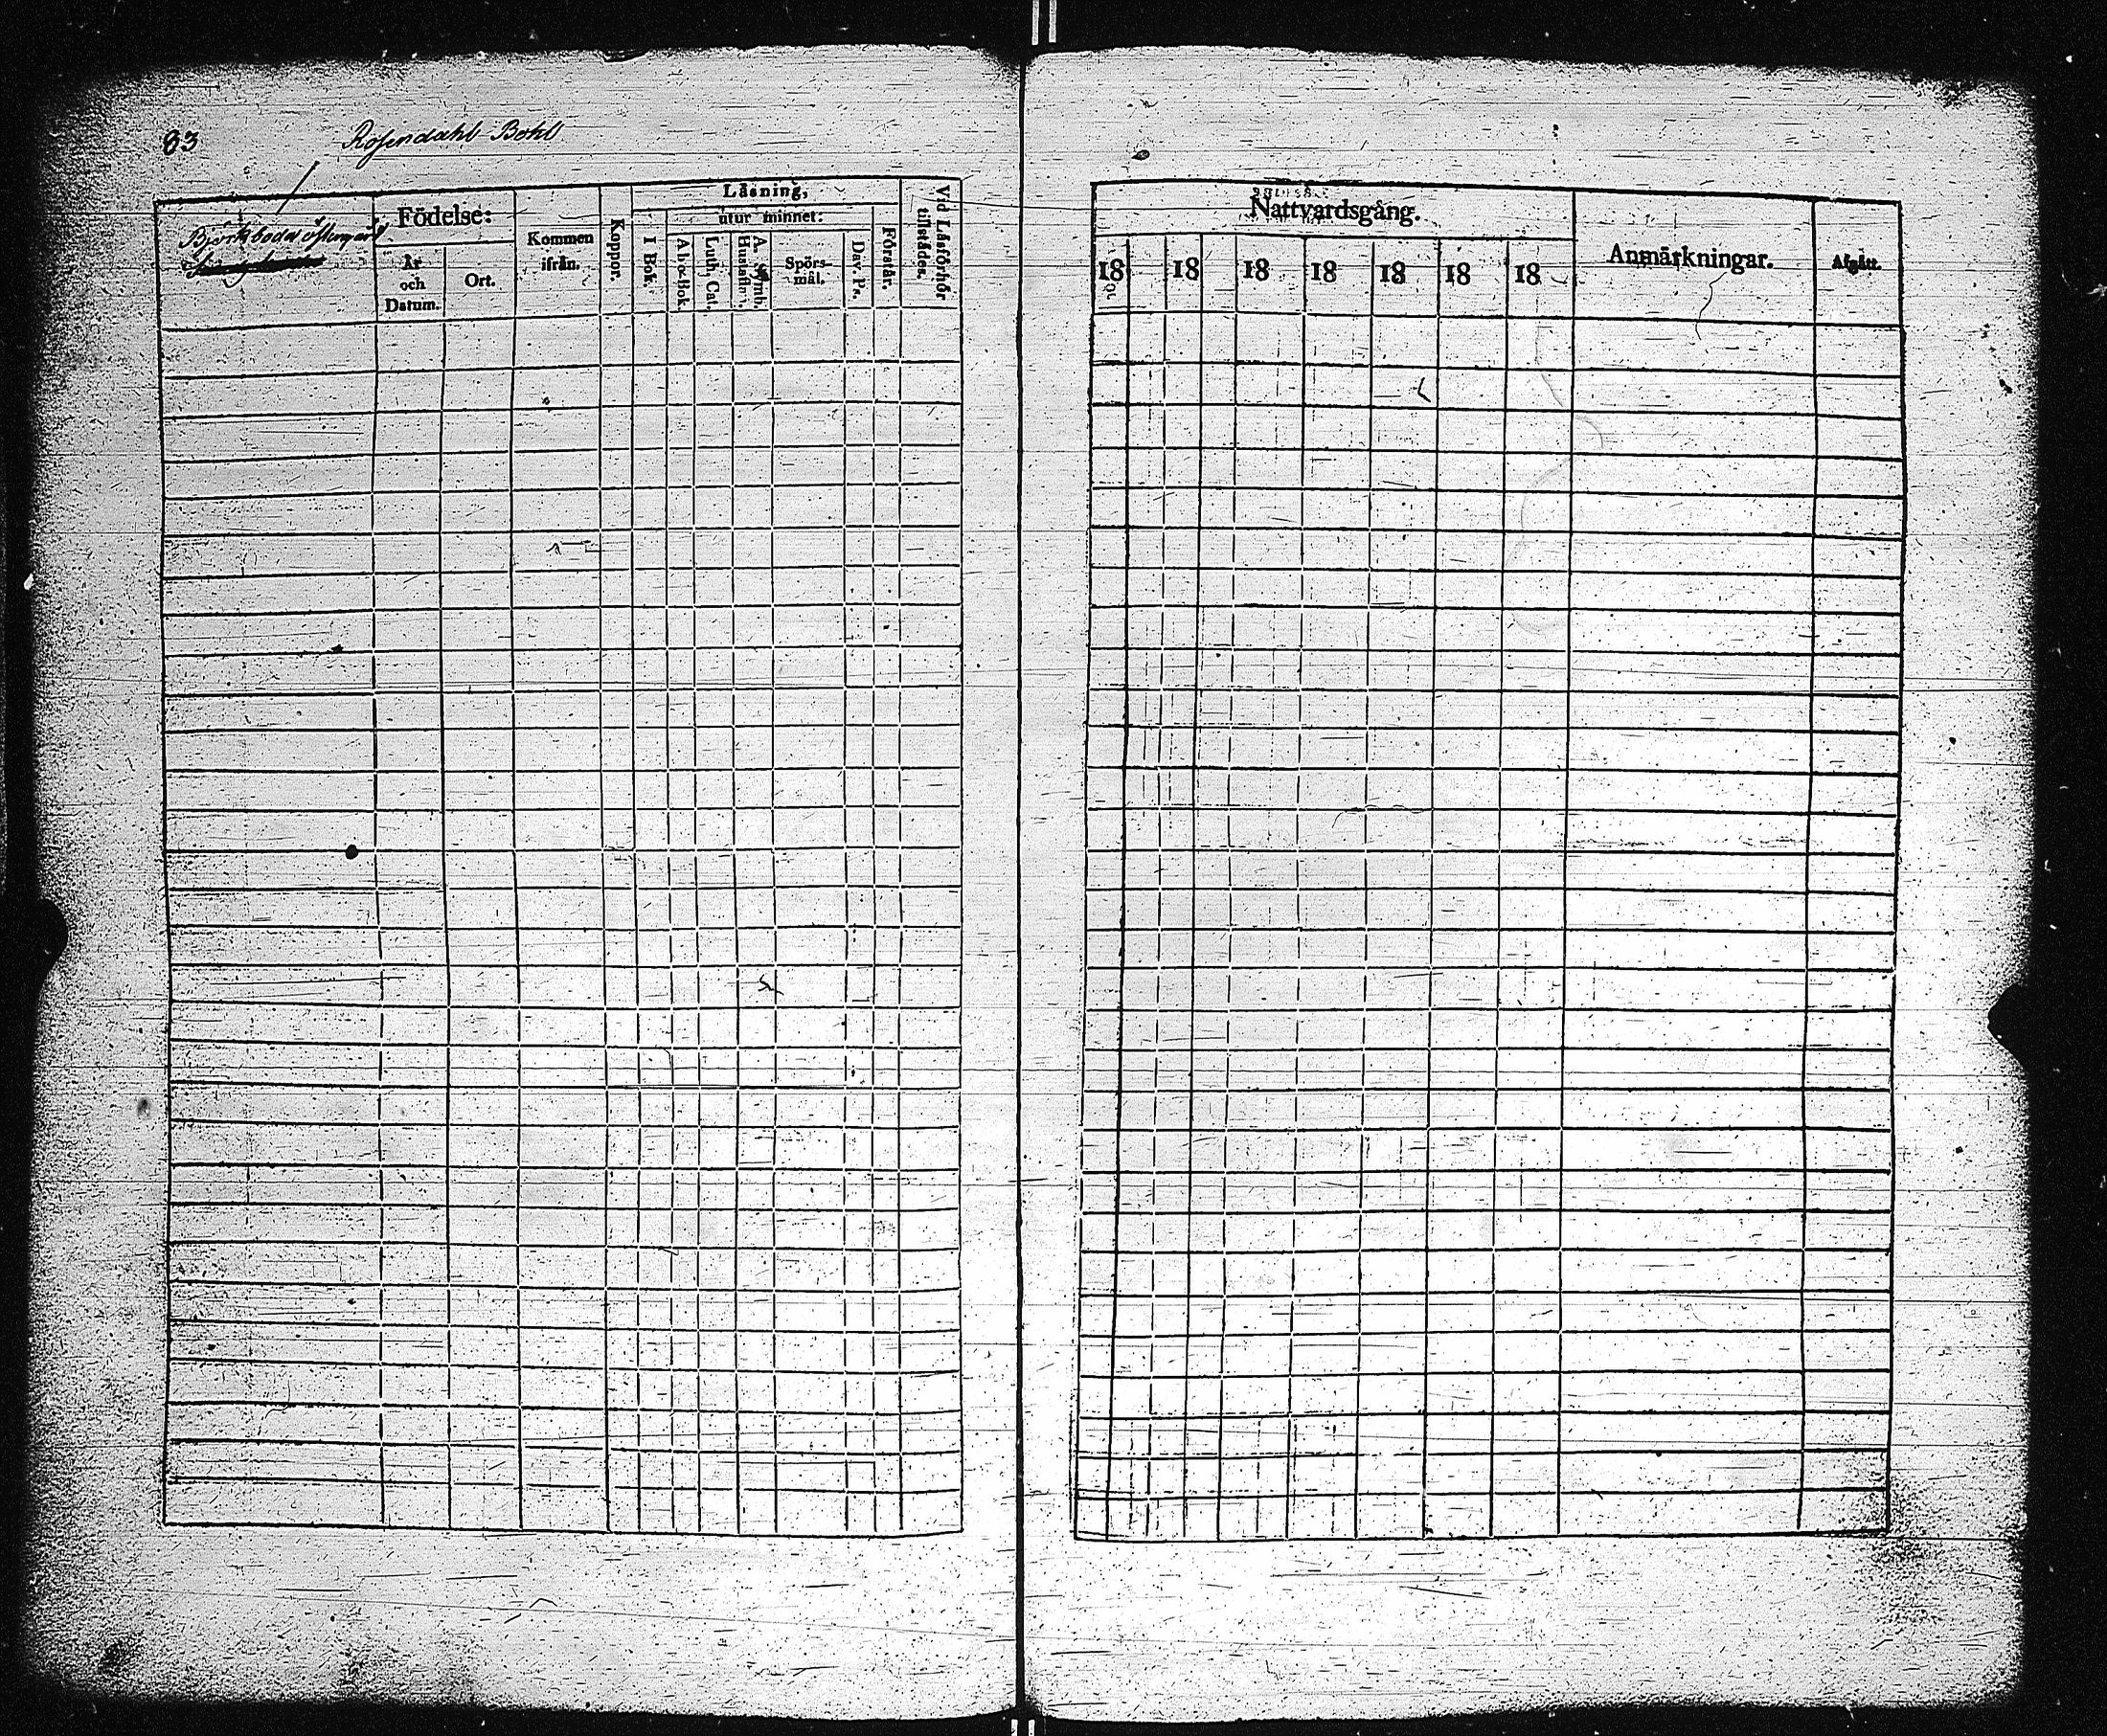 83
Rosendahl Bohl
Björkboda östergård
Födelse:
År och Datum.
Ort.
Kommen ifrån.
Koppor.
Läsning,
utur minnet:
I Bok.
Abc-Bok.
Luth. Cat.
A. Symb. Hustafl.
Spörs-mål.
Dav. Ps.
Förstår.
Vid Läsförhör tillstädes.
Nattvardsgång.
18 18 18 18 18 18 18
Anmärkningar.
Afgått.